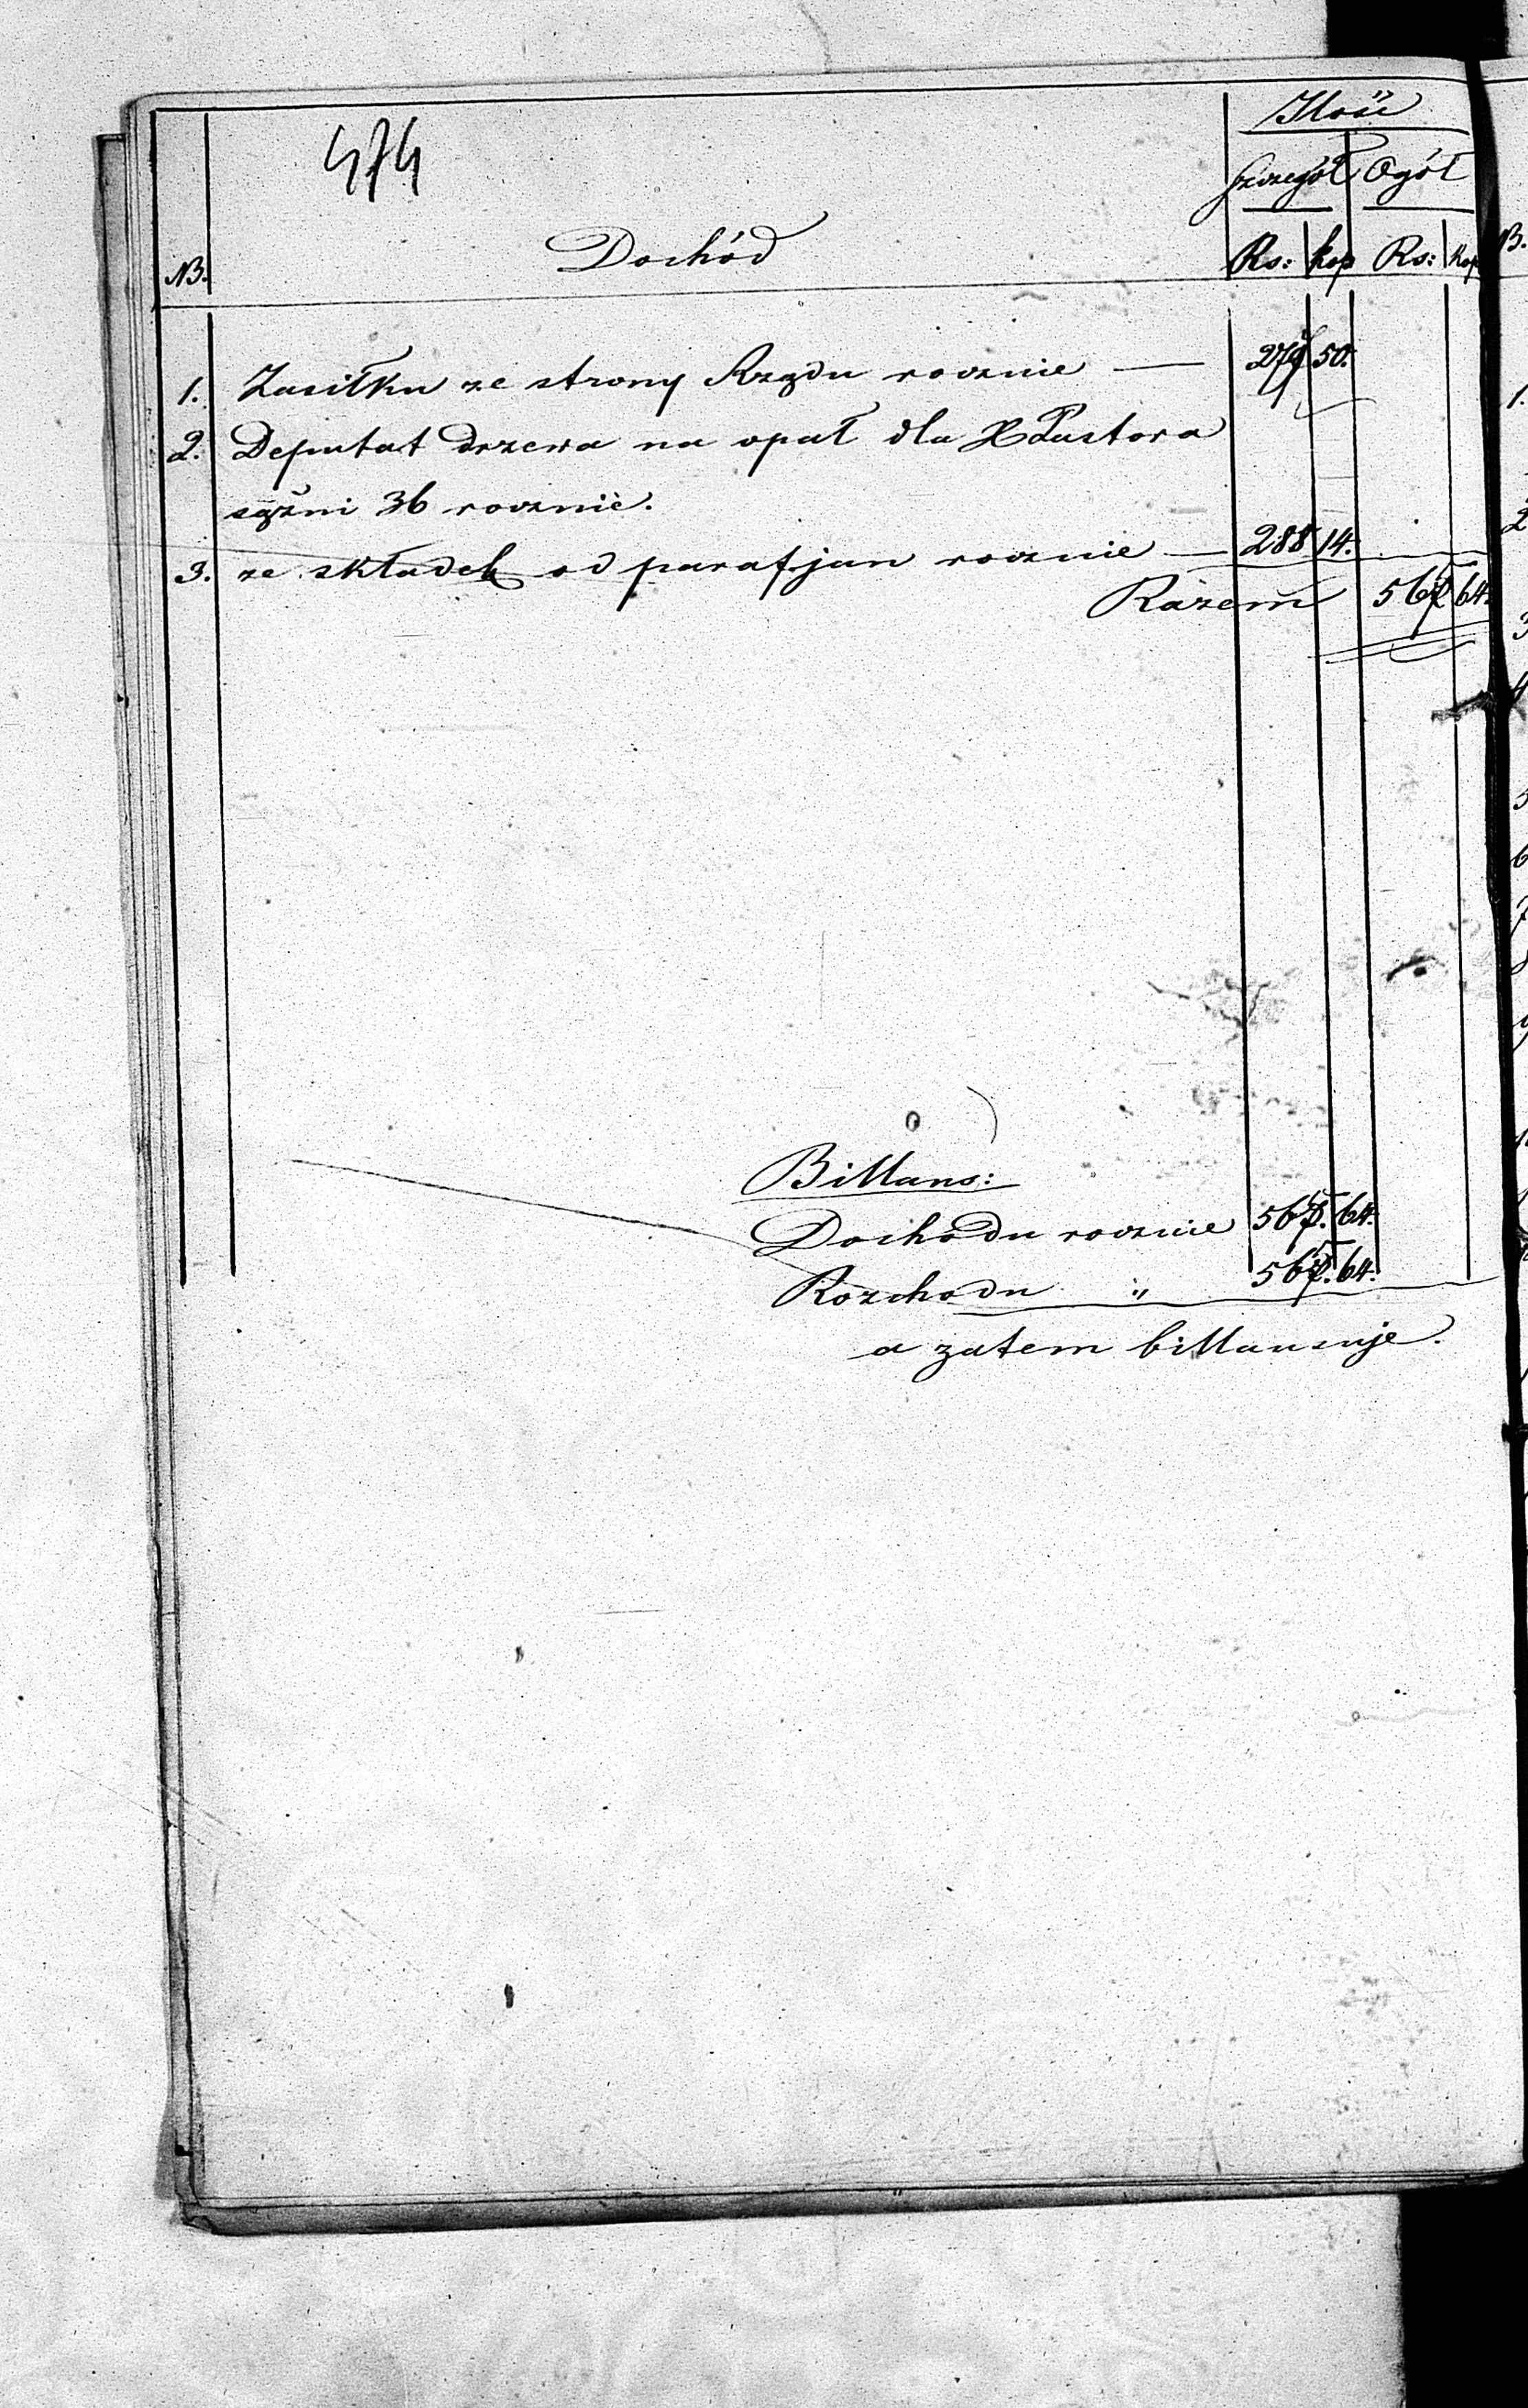 474
Ilość
Szczegół Ogół
NB. Dochód Rs: kop Rs: kop
1. Zasiłku ze strony Rządu rocznie — 279 50.
2. Deputat drzewa na opał dla X Pastora
sążni 36 rocznie.
3. ze składek od parafjan rocznie — 288 14.
Razem 567 64.
Billans:
Dochodu rocznie 567. 64.
Rozchodu " 567. 64.
a zatem billansuje.